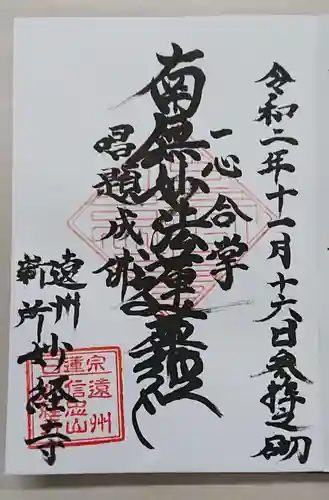 令和二年十一月十六日参拝之砌
一心合掌
南無妙法蓮華経
唱題成佛
遠州
新所
妙経寺
宗遠州
蓮信盛山
日妙経寺